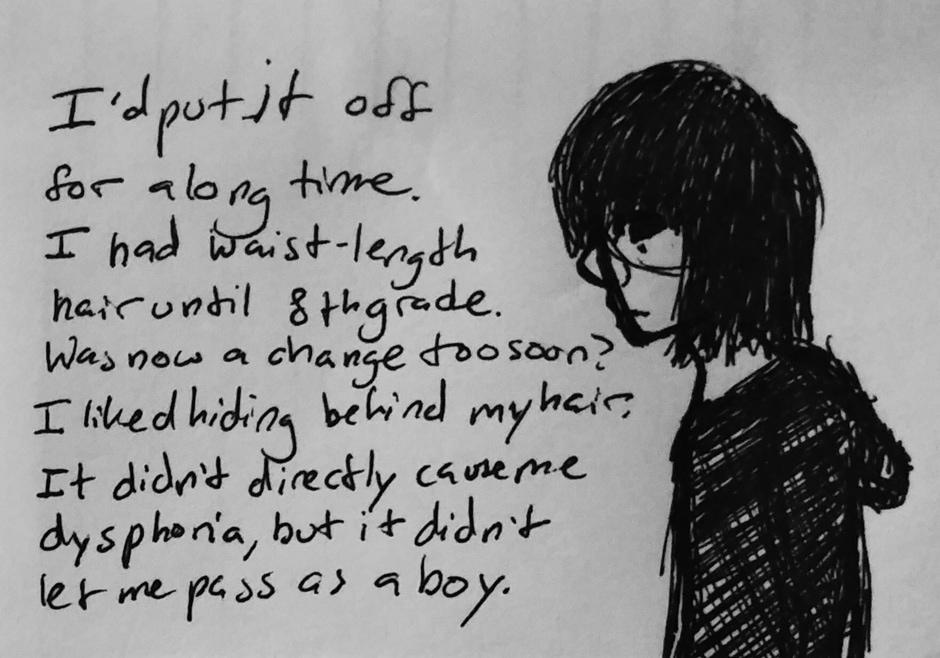 I'd put it off
for a long time.
I had waist-length
hair until 8th grade.
Was now a change too soon?
I liked hiding behind my hair.
It didn't directly cause me
dysphoria, but it didn't
let me pass as a boy.